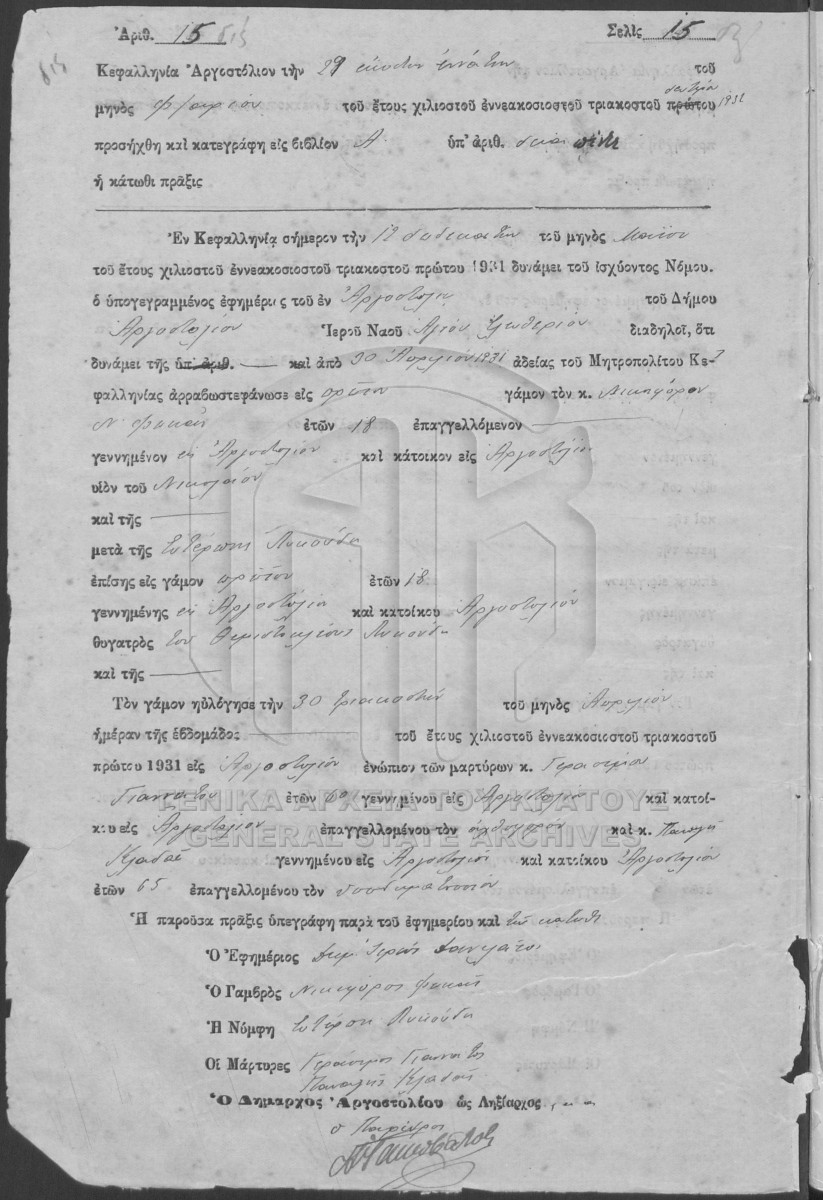 Ἀριθ. 15 δις Σελὶς 15 δις
δις
Κεφαλληνία Ἀργοστόλιον τὴν 29 εἰκοστὴν ἐννάτην τοῦ
δευτέρου
μηνὸς τοῦ ἔτους χιλιοστοῦ ἐννεακοσιοστοῦ τριακοστοῦ πρώτου 1932
προσήχθη καὶ κατεγράφη εἰς βιβλίον Α ὑπ' ἀριθ. δέκα πέντε
ἡ κάτωθι πρᾶξις
Ἐν Κεφαλληνίᾳ σήμερον τὴν 12 δωδεκάτην τοῦ μηνὸς Μαΐου
τοῦ ἔτους χιλιοστοῦ ἐννεακοσιοστοῦ τριακοστοῦ πρώτου 1931 δυνάμει τοῦ ἰσχύοντος Νόμου.
ὁ ὑπογεγραμμένος ἐφημέριος τοῦ ἐν Ἀργοστολίῳ τοῦ Δήμου
Ἀργοστολίου Ἱεροῦ Ναοῦ Ἁγίου Ἐλευθερίου διαδηλοῖ, ὅτι
δυνάμει τῆς ὑπ' ἀριθ. — καὶ ἀπὸ 30 Ἀπριλίου 1931 ἀδείας τοῦ Μητροπολίτου Κε-
φαλληνίας ἀρραβωστεφάνωσε εἰς πρῶτον γάμον τὸν κ. Νικηφόρον
Ν. Φωκᾶν ἐτῶν 18 ἐπαγγελλόμενον —
γεννημένον εἰς Ἀργοστόλιον καὶ κάτοικον εἰς Ἀργοστόλιον
υἱὸν τοῦ Νικολάου
καὶ τῆς —
μετὰ τῆς Εὐτέρπης Λυκούδη
ἐπίσης εἰς γάμον πρῶτον ἐτῶν 18
γεννημένης εἰς Ἀργοστόλιον καὶ κατοίκου Ἀργοστολίου
θυγατρὸς τοῦ Θεμιστοκλέους Λυκούδη
καὶ τῆς —
Τὸν γάμον ηὐλόγησε τὴν 30 τριακοστὴν τοῦ μηνὸς Ἀπριλίου
ἡμέραν τῆς ἑβδομάδος — τοῦ ἔτους χιλιοστοῦ ἐννεακοσιοστοῦ τριακοστοῦ
πρώτου 1931 εἰς Ἀργοστόλιον ἐνώπιον τῶν μαρτύρων κ. Γερασίμου
Γιαννάτου ἐτῶν 60 γεννημένου εἰς Ἀργοστόλιον καὶ κατοί-
κου εἰς Ἀργοστόλιον ἐπαγγελλομένου τὸν καὶ κ. Παναγῆ
Κλαδᾶ γεννημένου εἰς Ἀργοστόλιον καὶ κατοίκου Ἀργοστολίου
ἐτῶν 65 ἐπαγγελλομένου τὸν ὑποδηματοποιόν
Ἡ παροῦσα πρᾶξις ὑπεγράφη παρὰ τοῦ ἐφημερίου καὶ τῶν κάτωθι
Ὁ Ἐφημέριος
Ὁ Γαμβρὸς Νικηφόρος Φωκᾶς
Ἡ Νύμφη Εὐτέρπη Λυκούδη
Οἱ Μάρτυρες Γεράσιμος Γιαννάτος
Παναγῆς Κλαδᾶς
Ὁ Δήμαρχος Ἀργοστολίου ὡς Ληξίαρχος
ὁ Πάρεδρος
ΓΕΝΙΚΑ ΑΡΧΕΙΑ ΤΟΥ ΚΡΑΤΟΥΣ
GENERAL STATE ARCHIVES